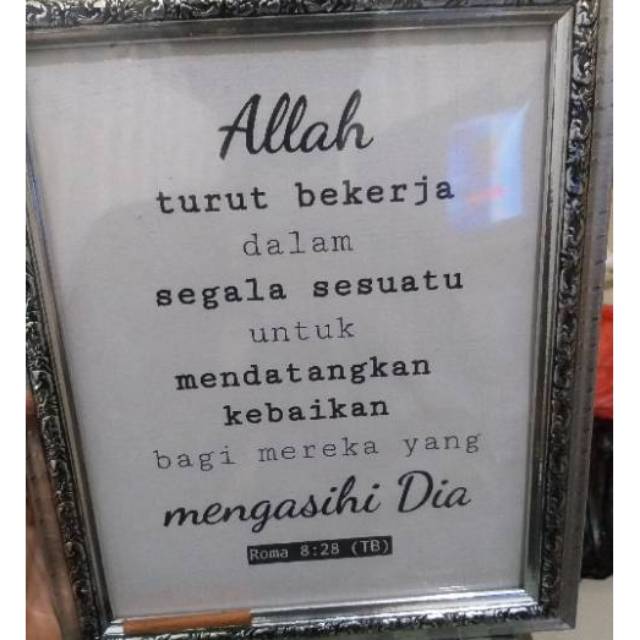 Allah
turut bekerja
dalam
segala sesuatu
untuk
mendatangkan
kebaikan
bagi mereka yang
mengasihi Dia
Roma 8:28 (TB)